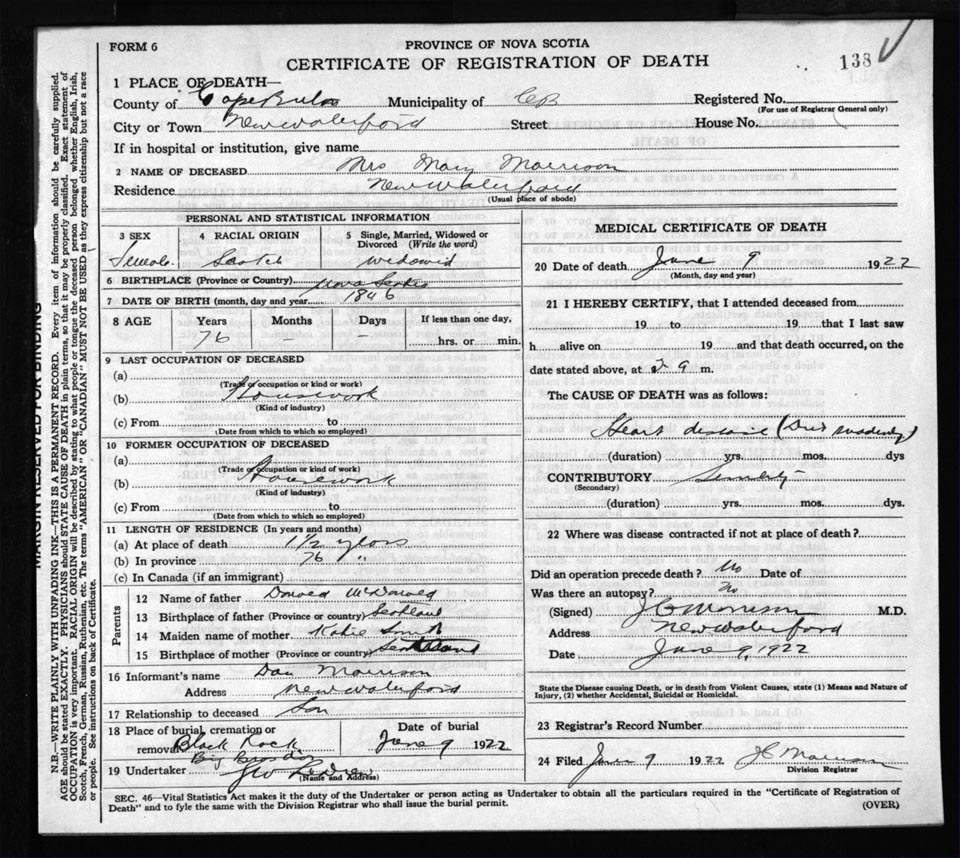 FORM 6
PROVINCE OF NOVA SCOTIA
CERTIFICATE OF REGISTRATION OF DEATH
138
1 PLACE OF DEATH—
County of Cape Breton Municipality of CB Registered No.
(For use of Registrar General only)
City or Town New Waterford Street House No.
If in hospital or institution, give name
2 NAME OF DECEASED Mrs Mary Morrison
Residence New Waterford
(Usual place of abode)
PERSONAL AND STATISTICAL INFORMATION
3 SEX
Female
4 RACIAL ORIGIN
Scotch
5 Single, Married, Widowed or Divorced (Write the word)
widowed
6 BIRTHPLACE (Province or Country) Nova Scotia
7 DATE OF BIRTH (month, day and year) 1846
8 AGE
Years
76
Months
–
Days
–
If less than one day,
hrs. or min.
9 LAST OCCUPATION OF DECEASED
(a)
(Trade or occupation or kind or work)
(b) Housework
(Kind of industry)
(c) From to
(Date from which to which so employed)
10 FORMER OCCUPATION OF DECEASED
(a)
(Trade or occupation or kind of work)
(b) Housework
(Kind of industry)
(c) From to
(Date from which to which so employed)
11 LENGTH OF RESIDENCE (In years and months)
(a) At place of death 1 1/2 years
(b) In province 76 "
(c) In Canada (if an immigrant)
Parents
12 Name of father Donald McDonald
13 Birthplace of father (Province or country) Scotland
14 Maiden name of mother Katie
15 Birthplace of mother (Province or country) Scotland
16 Informant's name Dan Morrison
Address New Waterford
17 Relationship to deceased Son
18 Place of burial, cremation or removal Black Rock
Big Bras d'Or
Date of burial
June 9 1922
19 Undertaker
(Name and Address)
MEDICAL CERTIFICATE OF DEATH
20 Date of death June 9 1922
(Month, day and year)
21 I HEREBY CERTIFY, that I attended deceased from
19 to 19 that I last saw
h alive on 19 and that death occurred, on the
date stated above, at 9 m.
The CAUSE OF DEATH was as follows:
Heart disease (Died suddenly)
(duration) yrs. mos. dys
CONTRIBUTORY Senility
(Secondary)
(duration) yrs. mos. dys.
22 Where was disease contracted if not at place of death?
Did an operation precede death? No Date of
Was there an autopsy? No
(Signed) J C Morrison M.D.
Address New Waterford
Date June 9, 1922
State the Disease causing Death, or in death from Violent Causes, state (1) Means and Nature of Injury, (2) whether Accidental, Suicidal or Homicidal.
23 Registrar's Record Number
24 Filed June 9 1922 J C Morrison
Division Registrar
SEC. 46—Vital Statistics Act makes it the duty of the Undertaker or person acting as Undertaker to obtain all the particulars required in the "Certificate of Registration of
Death" and to fyle the same with the Division Registrar who shall issue the burial permit.
(OVER)
MARGIN RESERVED FOR BINDING
N.B.—WRITE PLAINLY WITH UNFADING INK—THIS IS A PERMANENT RECORD. Every item of information should be carefully supplied.
AGE should be stated EXACTLY. PHYSICIANS should STATE CAUSE OF DEATH in plain terms, so that it may be properly classified. Exact statement of
OCCUPATION is very important. RACIAL ORIGIN will be described by stating to what people or tongue the deceased person belonged whether English, Irish,
Scotch, French, German, Russian, Ruthenian, etc. The terms "AMERICAN" OR "CANADIAN" MUST NOT BE USED as they express citizenship but not a race
or people. See instructions on back of Certificate.